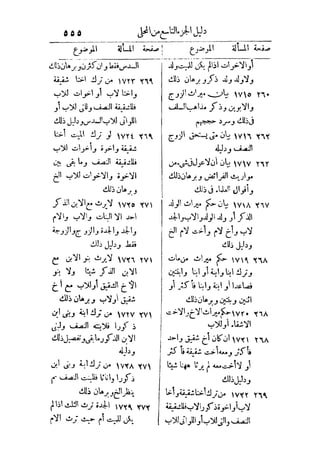 دليل الجزء التاسع من المحلى
٥٥٥
صفحة المسألة الموضوع
أو الاخوات اذا لم يكن للميت ولد
ولا ولد ولد ذكر وبرهان ذلك
٢٦٠ ١٧١٥ بيان ميراث الزوج
والابوين وذكر مذاهب السلف
فى ذلك وسرد حججهم
٢٦٢ ١٧١٦ بيان متى يستحق الزوج
النصف ودليله
٢٦٢ ١٧١٧ بيان أن لا عول فى شىء من
مواريث الفرائض وبرهان ذلك
وأقوال العلماء فى ذلك
٢٦٧ ١٧١٨ بيان حكم ميراث الولد
الذكر أو ولد الولد والاب والجد
لاب وأخ لام وأخت لام الخ
ودليل ذلك
٢٦٨ ١٧١٩ حكم ميراث من مات
وترك ابنا وابنة أو ابنا وابنتين
فصاعدا أو ابنة وابنا فأكثر أو
اثنين وبنتين وبرهان ذلك
٢٦٨ ١٧٢٠ حكم ميراث الاخ والاخت
الاشقاء أو للاب
٢٦٨ ١٧٢١ ان كان أخ شقيق واحد
فأكثر ومعه أخت شقيقة فأكثر
أو لا أخت معه لم يرث ههنا شيئا
ودليل ذلك
٢٦٩ ١٧٢٢ من ترك أختا شقيقة وأخا
لاب أو اخوة ذكورا لاب فللشقيقة
النصف والتى للاب أو اللواتى للاب
صفحة المسألة الموضوع
السدس فقط وان كثرن وبرهان ذلك
٢٦٩ ١٧٢٣ من ترك اختا شقيقة
واختا لاب أو اخوات للاب
فللشقيقة النصف وللتى للاب أو
اللواتى للاب السدس ودليل ذلك
٢٦٩ ١٧٢٤ لو ترك الميت أختا
شقيقة واخوة وأخوات للاب
فللشقيقة النصف وما بقى بين
الاخوة والاخوات للاب الخ
وبرهان ذلك
٢٧١ ١٧٢٥ لا يرث مع الابن الذكر
احد الا البنات والاب والام
والجد والجدة والزوج والزوجة
فقط ودليل ذلك
٢٧١ ١٧٢٦ لا يرث بنو الابن مع
الابن الذكر شيئا ولا بنو
الأخ الشقيق أو للاب مع أخ
شقيق أو لاب وبرهان ذلك
٢٧١ ١٧٢٧ من ترك ابنة وبنى ابن
ذكورا فلابنته النصف ولبنى
الابن الذكور ما بقى وتفصيل ذلك
ودليله
٢٧١ ١٧٢٨ من ترك ابنة وبنى ابن
ذكورا واناثا فللبنت النصف ثم
ينظر الخ وبرهان ذلك
٢٧٢ ١٧٢٩ الجدة ترث الثلث اذا لم
يكن للميت أم حيث ترث الام